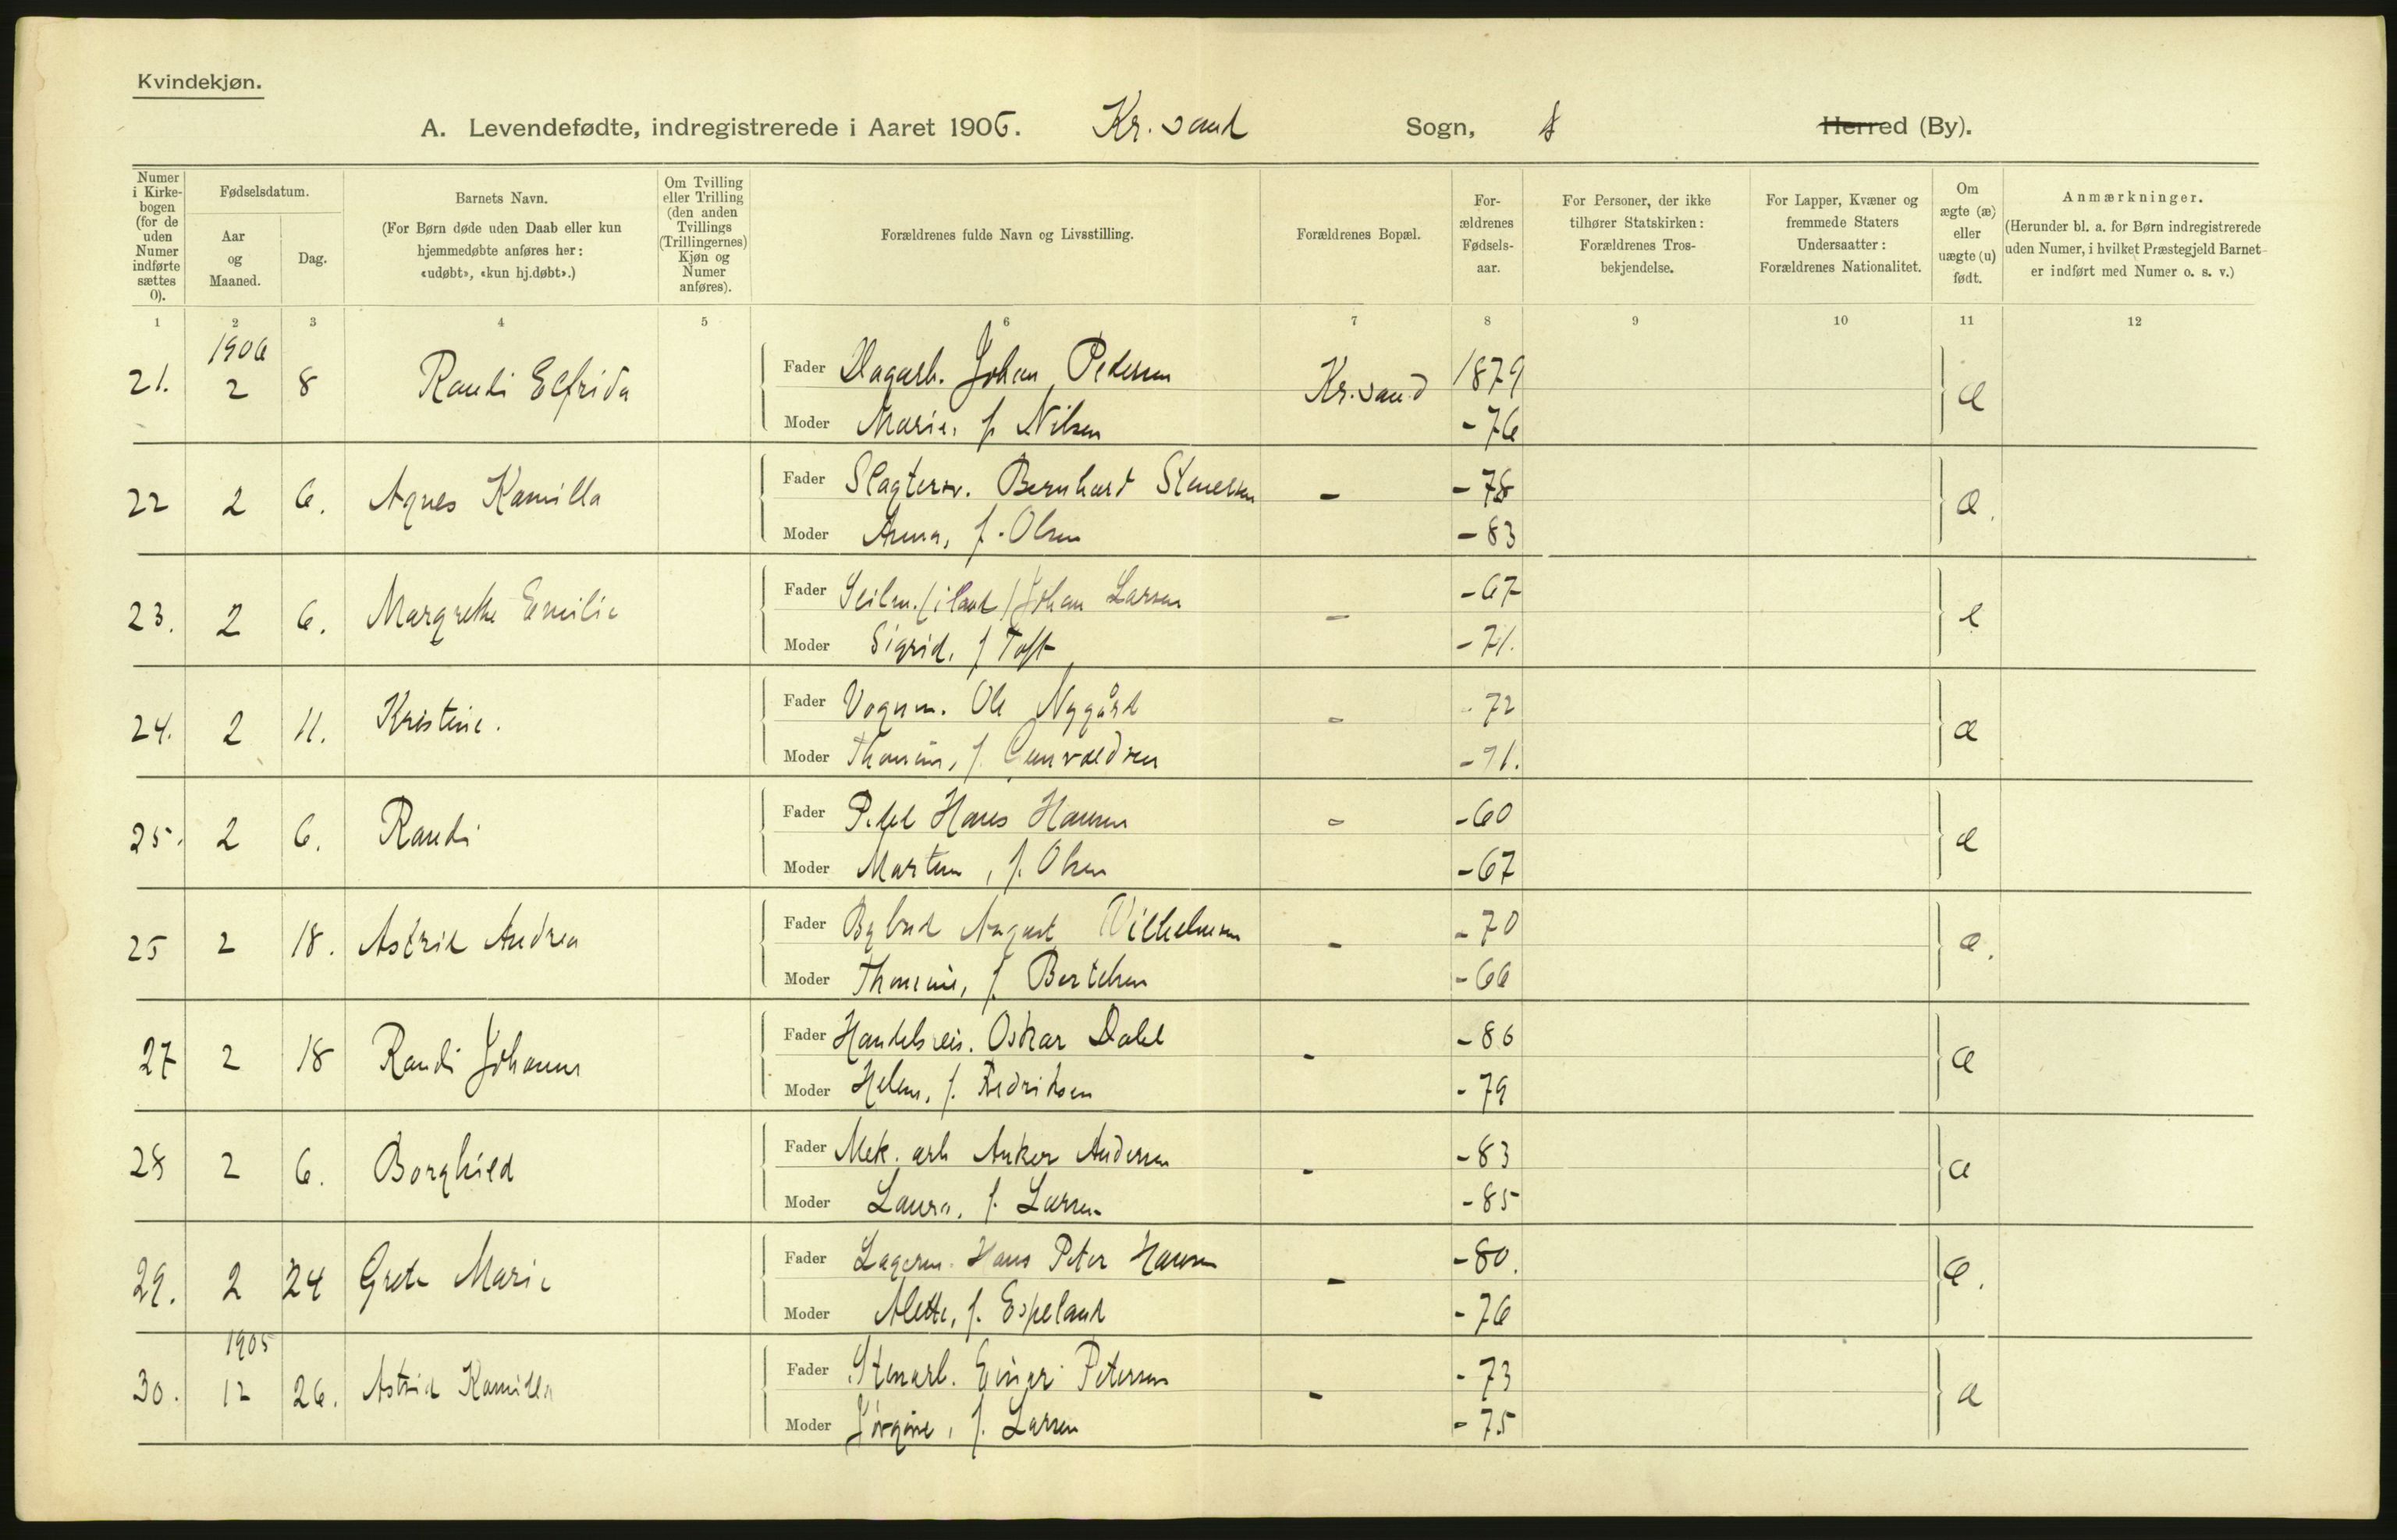 Kvindekjøn.
A. Levendefødte, indregistrerede i Aaret 1906. Kr.sand Sogn, Herred (By).
Numer i Kirkebogen (for de uden Numer indførte sættes 0).
Fødselsdatum.
Aar og Maaned.
Dag.
Barnets Navn.
(For Børn døde uden Daab eller kun hjemmedøbte anføres her: «udøbt», «kun hj.døbt».)
Om Tvilling eller Trilling (den anden Tvillings (Trillingernes) Kjøn og Numer anføres).
Forældrenes fulde Navn og Livsstilling.
Forældrenes Bopæl.
Forældrenes Fødselsaar.
For Personer, der ikke tilhører Statskirken: Forældrenes Trosbekjendelse.
For Lapper, Kvæner og fremmede Staters Undersaatter: Forældrenes Nationalitet.
Om ægte (æ) eller uægte (u) født.
Anmærkninger.
(Herunder bl. a. for Børn indregistrerede uden Numer, i hvilket Præstegjeld Barnet er indført med Numer o. s. v.)
1 2 3 4 5 6 7 8 9 10 11 12
1906
21. 2 8 Randi Elfrida Fader Dagarb. Johan Pedersen Kr.sand 1879 æ
Moder Marie, f. Nilsen -76
22 2 6. Agnes Kamilla Fader Slagtersv. Bernhard - -78 æ.
Moder Anna, f. Olsen -83
23. 2 6. Margrethe Emilie Fader Seilm. Johan Larsen - -67
Moder Sigrid, f Toft -71.
24. 2 11. Kristine. Fader Vognm. Ole Nygård - -72 æ
Moder f. -71.
25. 2 6. Randi Fader Hans Hansen - -60 æ
Moder f. Olsen -67
25 2 18. Astrid Andrea Fader Bybud August Vilhelmsen - -70 æ.
Moder Thomine, f. Bertelsen -66
27 2 18 Randi Johanne Fader Handelsreis. Oskar Dahl - -86 æ
Moder Helene, f. Fredriksen -79
28 2 6. Borghild Fader Mek. arb Anker Andersen - -83 æ
Moder Laura, f. Larsen -85
29. 2 24 Grete Marie Fader Lagerm. Hans Peter Hansen - -80. æ.
Moder Alette, f. Espeland -76
1905
30. 12 26. Astrid Kamilla Fader Stenarb. Einar Petersen - -73 æ
Moder Jørgine, f. Larsen -75